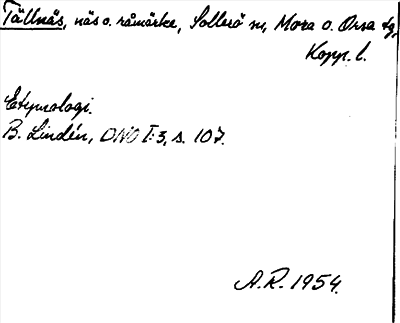 Tällnäs, näs o. råmärke, Sollerö sn, Mora o. Orsa tg,
Kopp. l.
Etymologi.
B. Lindén, DNO I:3, s. 107.
A.R. 1954.